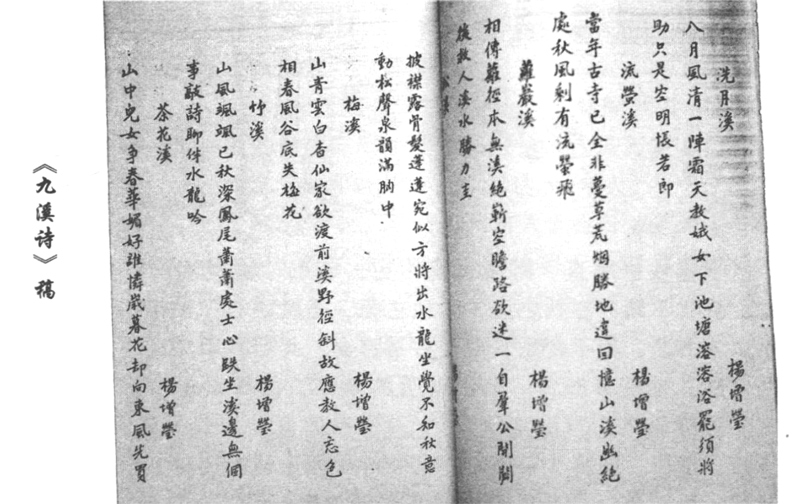 洗月溪
楊增瑩
八月風清一陣霜天教娥女下池塘溶溶浴罷須將
助只是空明悵若即
流螢溪
楊增瑩
當年古寺已全非蔓草荒烟勝地違回憶山溪幽絕
處秋風剩有流螢飛
蘿巖溪
楊增瑩
相傳蘿徑本無溪絕嶄空瞻路欲迷一自羣公開闢
後教人溪水勝刀圭
松溪
披襟露骨髮蓬蓬宛似方將出水龍坐覺不知秋意
動松聲泉韻滿胸中
梅溪
楊增瑩
山青雲白杳仙家欲渡前溪野徑斜故應教人忘色
相春風谷底失梅花
竹溪
楊增瑩
山風颯颯已秋深鳳尾蕭蕭處士心趺坐溪邊無個
事敲詩聊伴水龍吟
茶花溪
楊增瑩
山中兒女爭春華媚好誰憐歲暮花却向東風先買
《九溪诗》稿